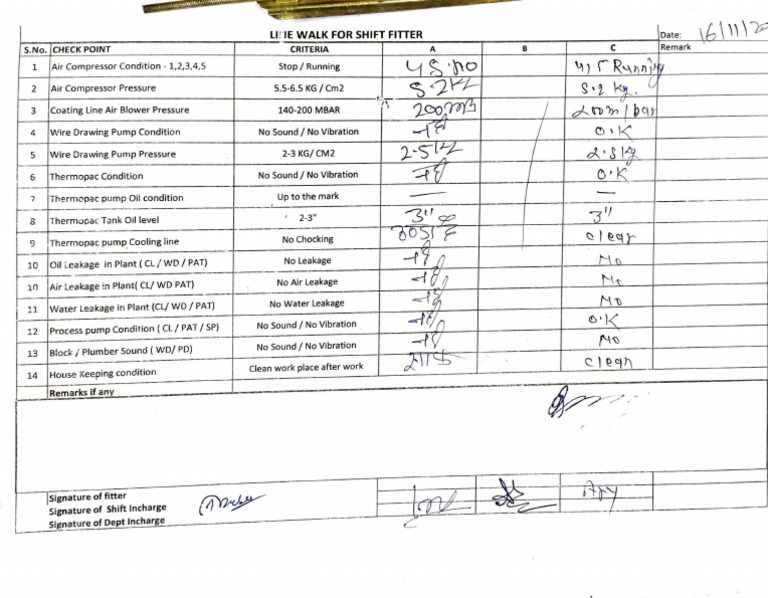 LINE WALK FOR SHIFT FITTER Date: 16/11/20
S.No. CHECK POINT CRITERIA A B C Remark
1 Air Compressor Condition - 1,2,3,4,5 Stop / Running 4,5 Running
2 Air Compressor Pressure 5.5-6.5 KG / Cm2 5.2 5.2 kg.
3 Coating Line Air Blower Pressure 140-200 MBAR 200 200 m/bar
4 Wire Drawing Pump Condition No Sound / No Vibration नही O.K
5 Wire Drawing Pump Pressure 2-3 KG/ CM2 2.5 2.5 kg
6 Thermopac Condition No Sound / No Vibration नही O.K
7 Thermopac pump Oil condition Up to the mark — —
8 Thermopac Tank Oil level 2-3" 3" 3"
9 Thermopac pump Cooling line No Chocking clear
10 Oil Leakage in Plant ( CL / WD / PAT) No Leakage नही No
10 Air Leakage in Plant( CL/ WD PAT) No Air Leakage नही No
11 Water Leakage in Plant (CL/ WD / PAT) No Water Leakage नही No
12 Process pump Condition ( CL / PAT / SP) No Sound / No Vibration नही O.K
13 Block / Plumber Sound ( WD/ PD) No Sound / No Vibration नही No
14 House Keeping condition Clean work place after work clean
Remarks if any
Signature of fitter
Signature of Shift Incharge
Signature of Dept Incharge